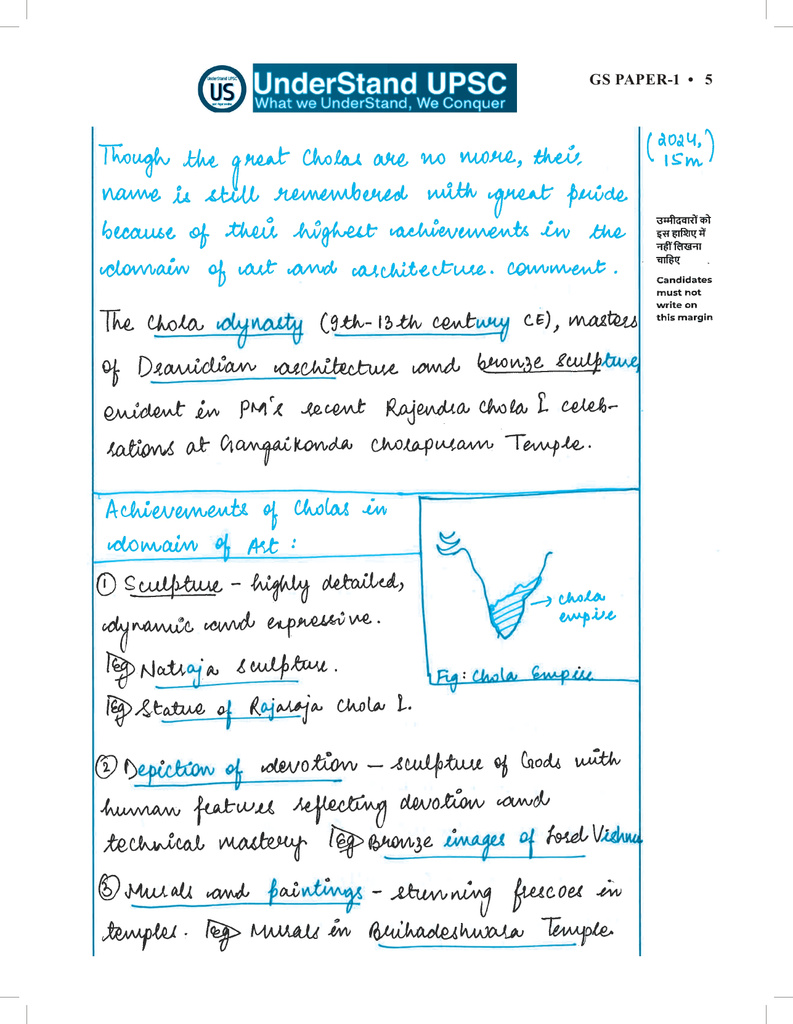 UnderStand UPSC
US
UnderStand UPSC
What we UnderStand, We Conquer
GS PAPER-1 • 5
Though the great Cholas are no more, their
name is still remembered with great pride
because of their highest achievements in the
domain of art and architecture. comment.
(2024,
15m)
उम्मीदवारों को
इस हाशिए में
नहीं लिखना
चाहिए
Candidates
must not
write on
this margin
The Chola dynasty (9th-13th century CE), masters
of Dravidian architecture and bronze sculpture,
evident in PM's recent Rajendra Chola I celeb-
rations at Gangaikonda Cholapuram Temple.
Achievements of Cholas in
domain of Art :
① Sculpture - highly detailed,
dynamic and expressive.
Eg Natraja sculpture.
Eg Statue of Rajaraja Chola I.
→ Chola
empire
Fig: Chola Empire
② Depiction of devotion - sculpture of Gods with
human features reflecting devotion and
technical mastery. Eg Bronze images of Lord Vishnu
③ Murals and paintings - stunning frescoes in
temples. Eg Murals in Brihadeshwara Temple.